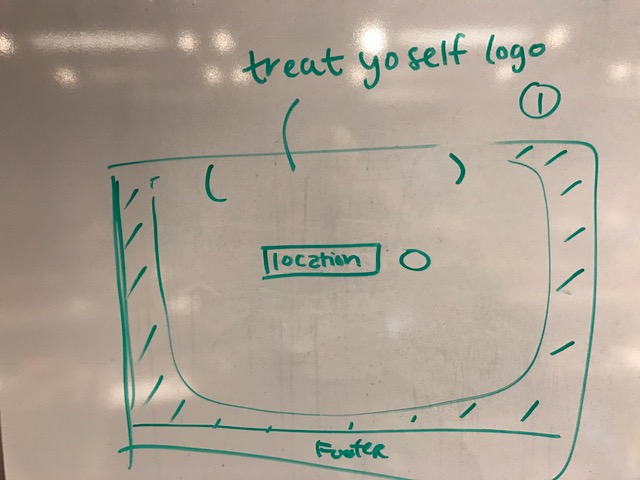 treat yoself logo
1
location
Footer